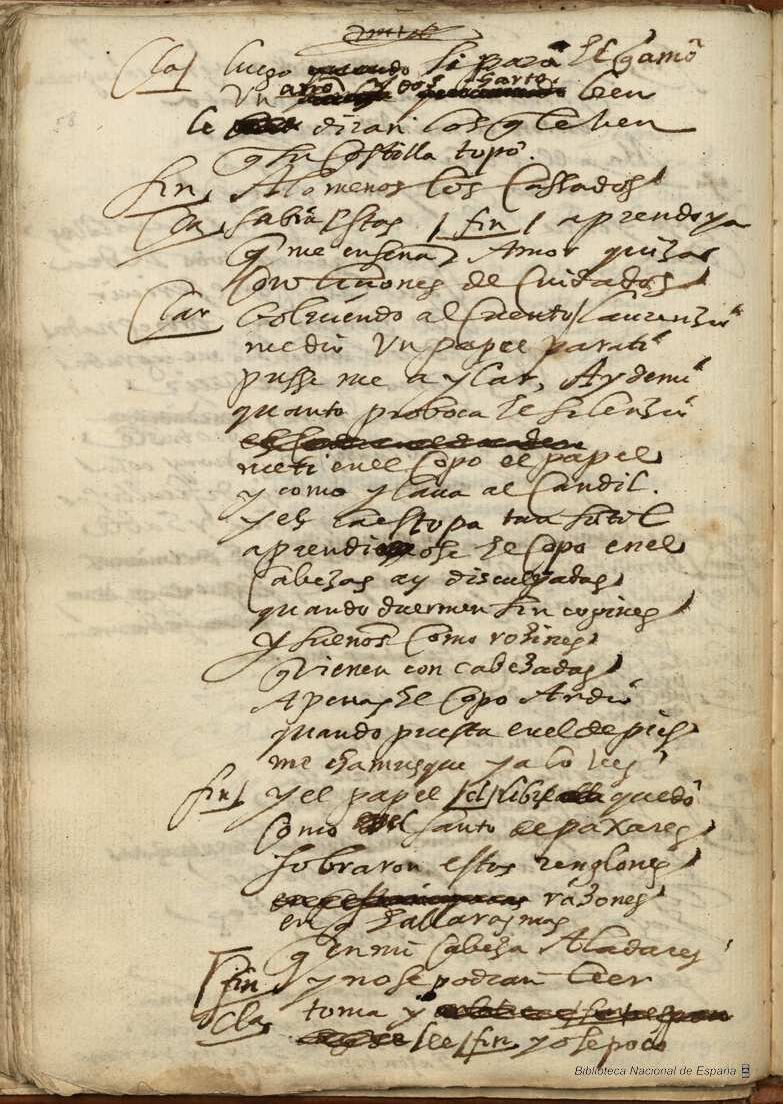 Cla luego si para el gamo
Un arro dos Garto leen
le diran los q le ven
q su costilla topo.
fin A lo menos los cassados
Cla sabra estas fin aprendo ya
q me enseña Amor quizas
con liciones de cuidados
Clar bolviendo al cuento Laurenzio
me dio Un papel para ti
pusse me a ylar, Ay de mi
quanto proboca el silenzio
meti en el copo el papel
y como ylaua al candil.
y es la estopa tan sutil
aprendiose el copo en el
Cabezas ay disculpadas
quando duermen sin coxines
y sueños como rozines
q vienen con cabezadas
Apenas el copo Ardio
quando puesta en el de pies
me chamusque ya lo ves
fin y el papel cl libre quedo
Como el santo de paxares
sobraron estos renglones
razones
en q hallaras mas
q en mi cabeza Aladares
fin y no se podran leer
Cla toma y
lee fin yo se poco
Biblioteca Nacional de España